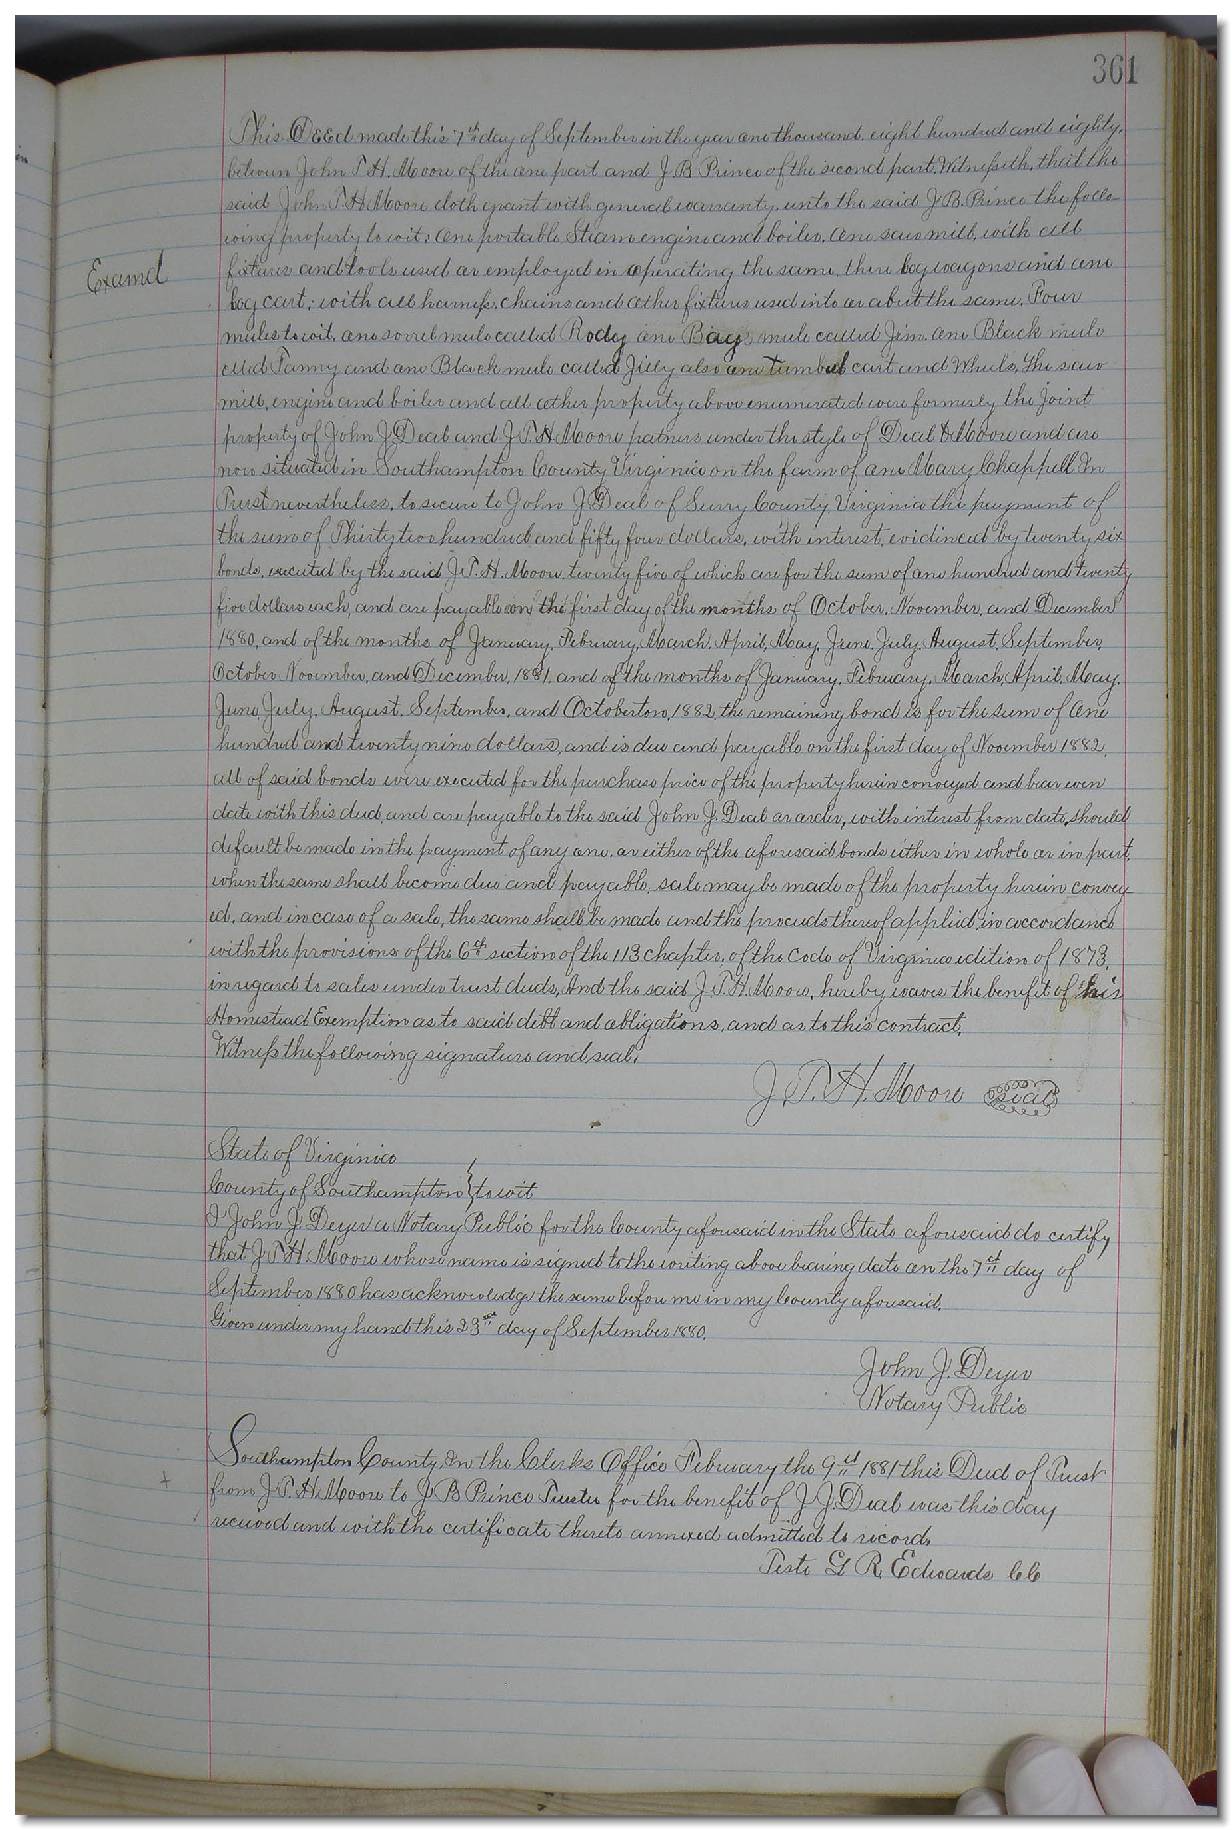 361
This Deed made this 7th day of September in the year one thousand eight hundred and eighty,
between John T. H. Moore of the one part and J B Prince of the second part, Witnesseth, that the
said John T. H Moore doth grant with general warranty, unto the said J B. Prince the follo
wing property to wit; One portable Steam engine and boiler, one saw mill, with all
Examd
fixtures and tools used or employed in operating the same, three log wagons and one
log cart; with all harness, chains and other fixtures used into or about the same, Four
mules to wit, one sorrel mule called Rody one Bay mule called Jim one Black mule
called Fanny and one Black mule called Jilly also one tumbul cart and Wheels, The saw
mill, engine and boiler and all other property above enumerated were formerly the joint
property of John J. Deal and J. T. H Moore patners under the style of Deal & Moore and are
now situated in Southampton County Virginia on the farm of one Mary Chappell In
Trust nevertheless, to secure to John J Deal of Surry County Virginia the payment of
the sum of Thirty two hundred and fifty four dollars, with interest, evidenced by twenty six
bonds, executed by the said J. T. H. Moore, twenty five of which are for the sum of one hundred and twenty
five dollars each, and are payable on the first day of the months of October, November, and December
1880, and of the months of January, February, March, April, May, June, July, August, September,
October November, and December, 1881, and of the months of January, February, March, April, May,
June, July, August, September, and October 1882, the remaining bond is for the sum of One
hundred and twenty nine dollars, and is due and payable on the first day of November 1882,
all of said bonds were executed for the purchase price of the property herein conveyed and bear even
date with this deed, and are payable to the said John J. Deal or order, with interest from date, should
default be made in the payment of any one or either of the aforesaid bonds either in whole or in part,
when the same shall become due and payable, sale may be made of the property herein convey
ed, and in case of a sale, the same shall be made and the proceeds thereof applied, in accordance
with the provisions of the 6th section of the 113 chapter, of the Code of Virginia edition of 1873,
in regard to sales under trust deeds, And the said J. T. H. Moore, hereby waves the benefit of his
Homestead Exemption as to said debt and obligations, and as to this contract.
Witness the following signature and seal.
J. T. H. Moore Seal
State of Virginia
County of Southampton } to wit
I John J. Deyer a Notary Public for the County aforesaid in the State aforesaid do certify
that J. T. H. Moore whose name is signed to the writing above bearing date on the 7th day of
September 1880 has acknowledge the same before me in my County aforesaid.
Given under my hand this 23rd day of September 1880.
John J. Deyer
Notary Public
Southampton County, In the Clerks Office February the 9th 1881 this Deed of Trust
from J. T. H. Moore to J. B Prince Trustee for the benefit of J. J. Deal was this day
received and with the certificate thereto annexed admitted to record.
Teste G R. Edwards CC